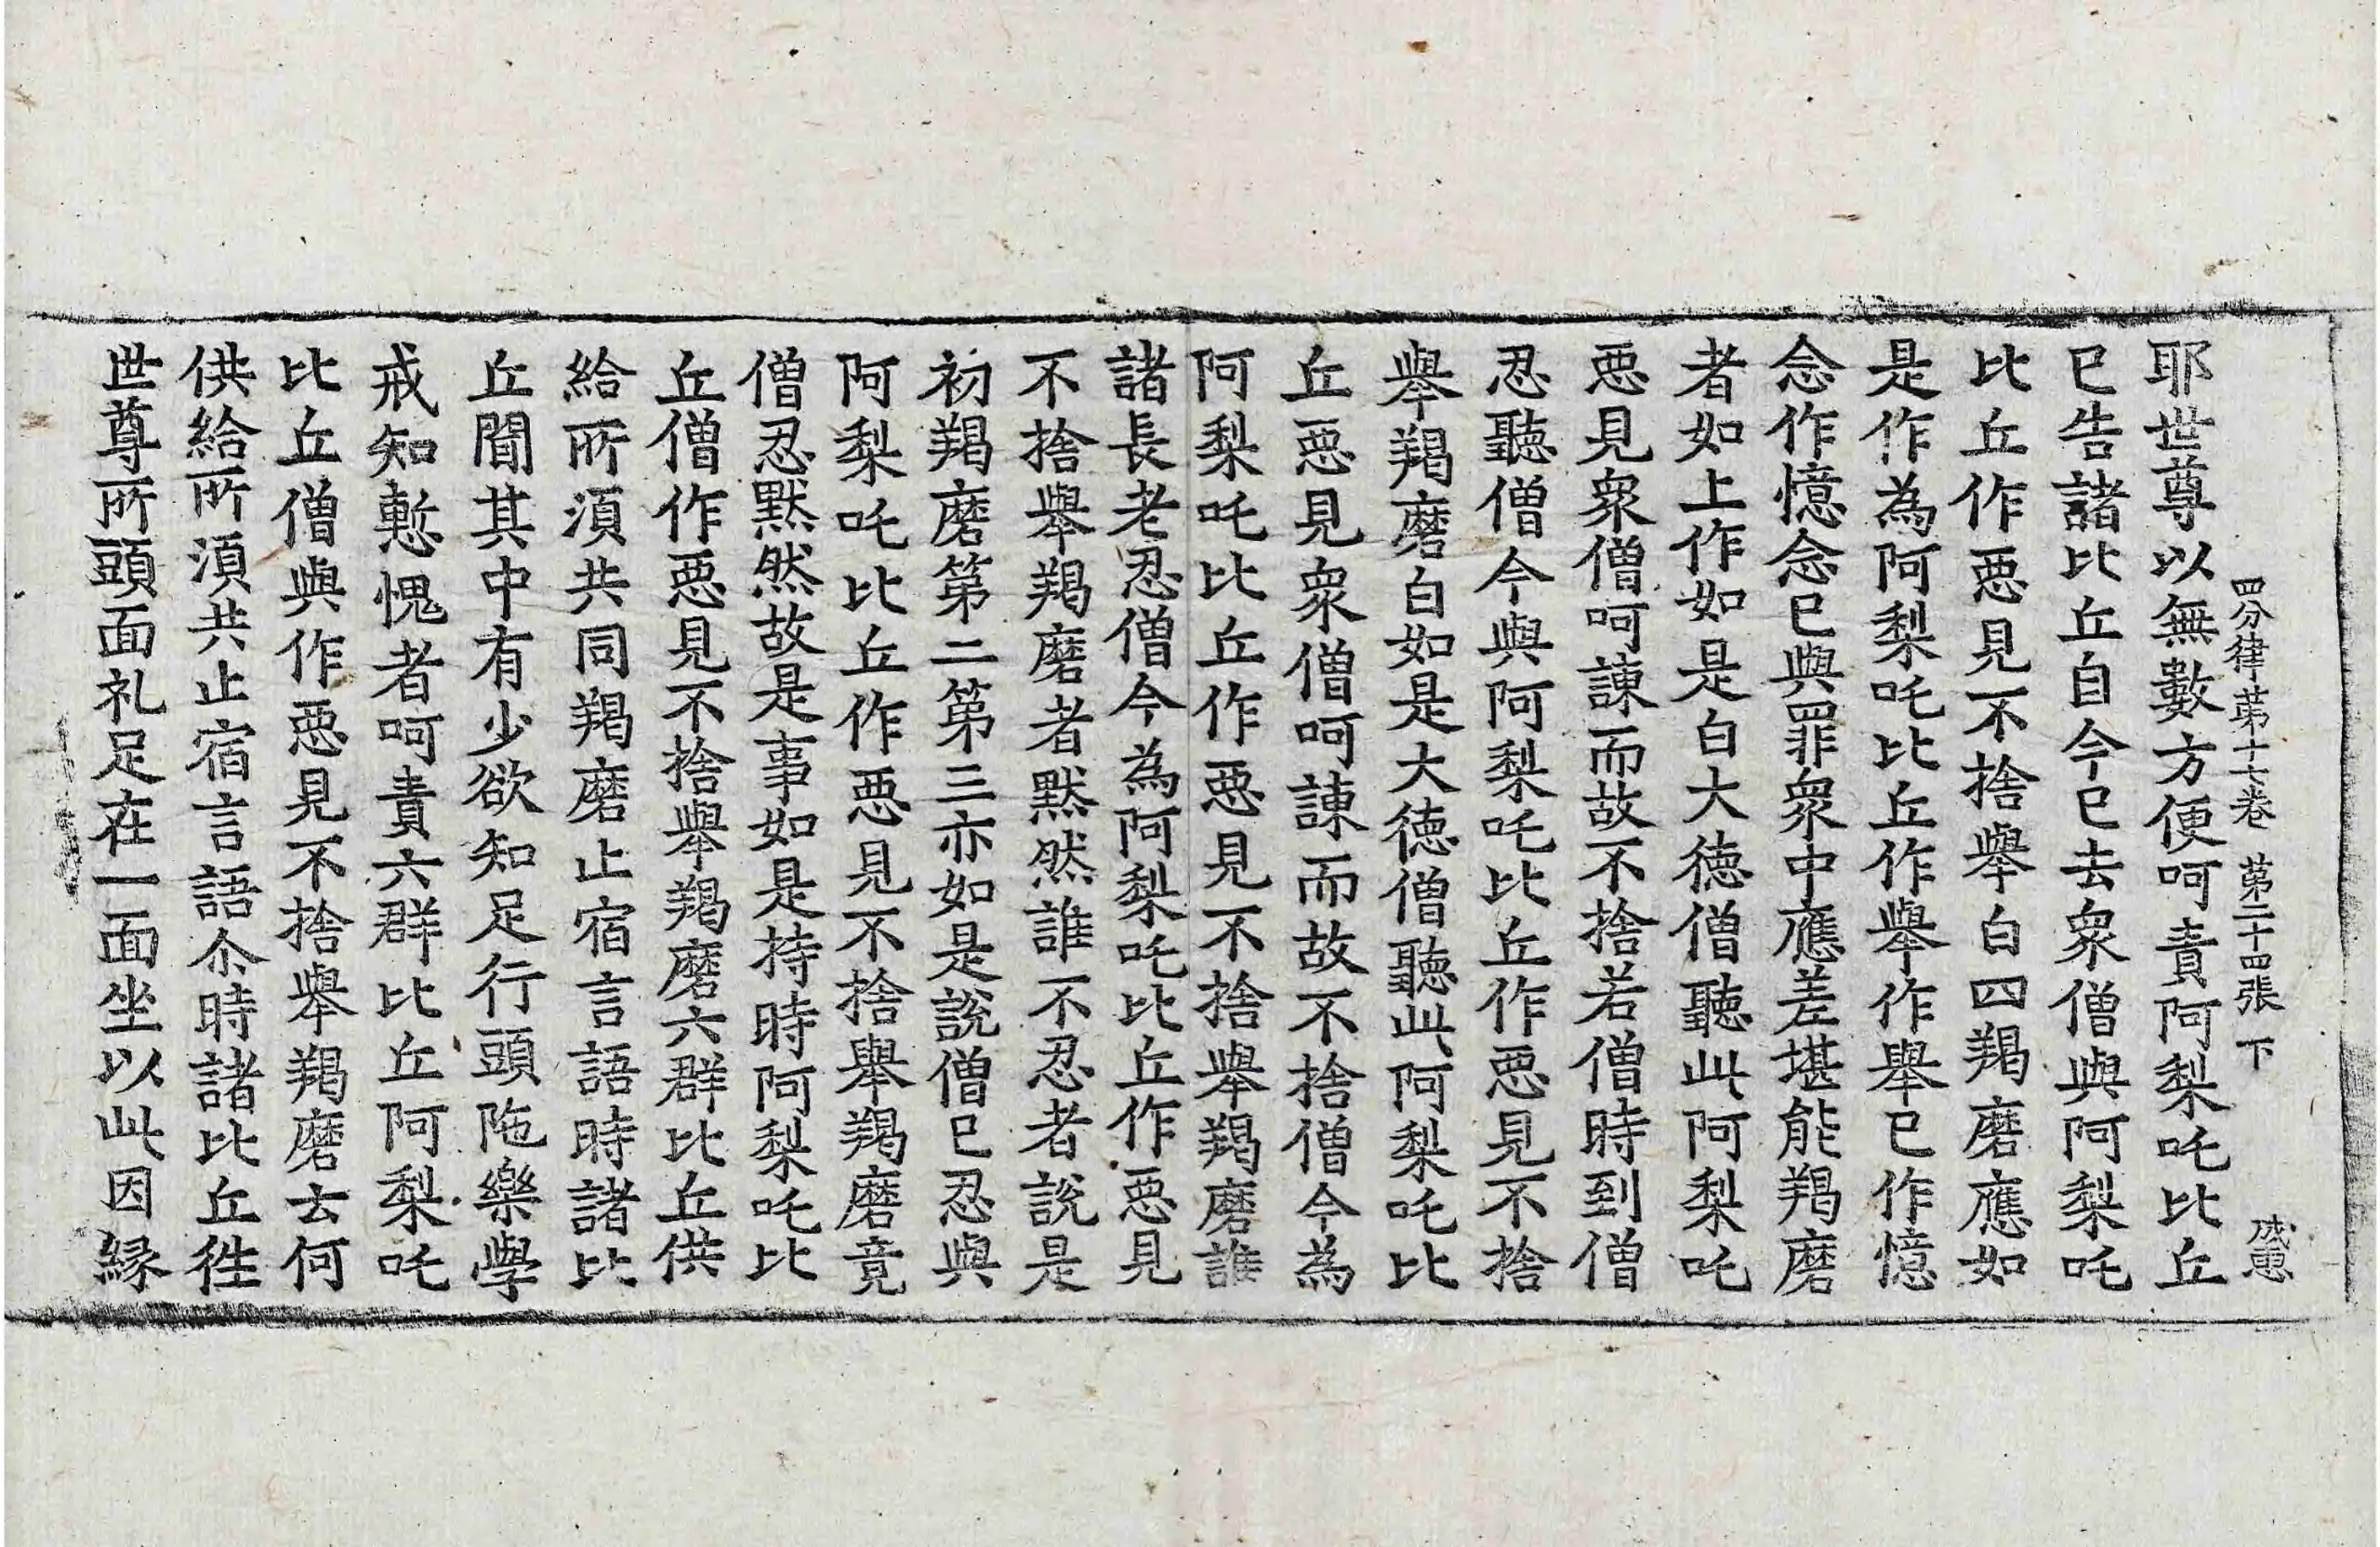 四分律苐十七卷 苐二十四張 下 成惠
耶世尊以無數方便呵責阿梨吒比丘
已告諸比丘自今已去衆僧與阿梨吒
比丘作惡見不捨舉白四羯磨應如
是作為阿梨吒比丘作舉作舉已作憶
念作憶念已與罪衆中應差堪能羯磨
者如上作如是白大德僧聽此阿梨吒
惡見衆僧呵諫而故不捨若僧時到僧
忍聽僧今與阿梨吒比丘作惡見不捨
舉羯磨白如是大德僧聽此阿梨吒比
丘惡見衆僧呵諫而故不捨僧今為
阿梨吒比丘作惡見不捨舉羯磨誰
諸長老忍僧今為阿梨吒比丘作惡見
不捨舉羯磨者黙然誰不忍者說是
初羯磨第二第三亦如是說僧已忍與
阿梨吒比丘作惡見不捨舉羯磨竟
僧忍黙然故是事如是持時阿梨吒比
丘僧作惡見不捨舉羯磨六群比丘供
給所湏共同羯磨止宿言語時諸比
丘聞其中有少欲知足行頭陁樂學
戒知慙愧者呵責六群比丘阿梨吒
比丘僧與作惡見不捨舉羯磨云何
供給所湏共止宿言語尒時諸比丘徃
世尊所頭面礼足在一面坐以此因緣